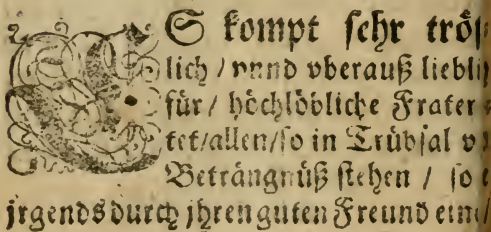 ES kompt sehr tröst
lich / vnnd vberauß liebli
für / höchlöbliche Frater
tet/allen/so in Trübsal v
Beträngnüß stehen / so
jrgends durch jhren guten Freund eine